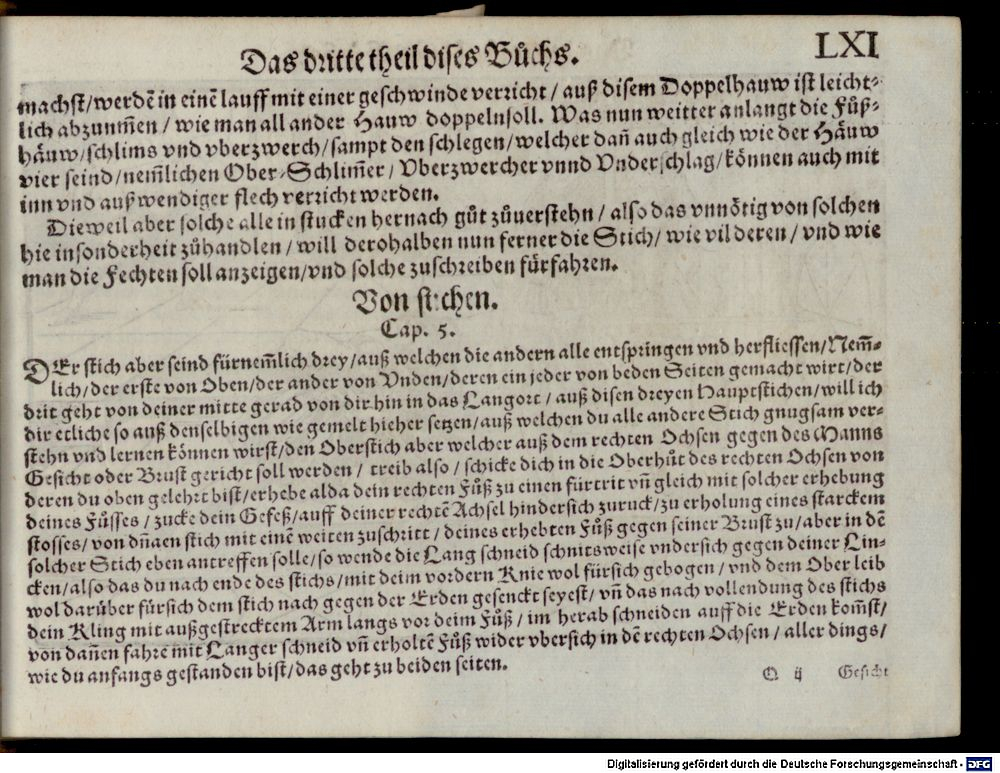 Das dritte theil dises Bůchs.
LXI
machst/werdẽ in einẽ lauff mit einer geschwinde verzicht / auß disem Doppelhauw ist leicht-
lich abzunm̃en / wie man all ander Hauw doppeln soll. Was nun weitter anlangt die Fůß-
häuw/schlims vnd vberzwerch/sampt den schlegen/welcher dañ auch gleich wie der Häuw
vier seind/nem̃lichen Ober-Schlim̃er / Vberzwercher vnnd Vnderschlag/können auch mit
inn vnd außwendiger flech verzicht werden.
Dieweil aber solche alle in stucken hernach gůt zůuerstehn / also das vnnötig von solchen
hie insonderheit zůhandlen / will derohalben nun ferner die Stich/ wie vil deren / vnd wie
man die Fechten soll anzeigen/vnd solche zuschreiben fürfahren.
Von stechen.
Cap. 5.
DEr stich aber seind fürnem̃lich drey/auß welchen die andern alle entspringen vnd herfliessen/Nem̃-
lich/der erste von Oben/der ander von Vnden/deren ein jeder von beden Seiten gemacht wirt/der
drit geht von deiner mitte gerad von dir hin in das Langort / auß disen dreyen Hauptstichen/will ich
dir etliche so auß denselbigen wie gemelt hieher setzen/auß welchen du alle andere Stich gnugsam ver-
stehn vnd lernen können wirst/den Oberstich aber welcher auß dem rechten Ochsen gegen des Manns
Gesicht oder Brust gericht soll werden / treib also / schicke dich in die Oberhůt des rechten Ochsen von
deren du oben gelehrt bist/erhebe alda dein rechten Fůß zu einen fürtrit vñ gleich mit solcher erhebung
deines Fůsses / zucke dein Gefeß/auff deiner rechtẽ Achsel hindersich zuruck/zu erholung eines starckem
stosses/von dñaen stich mit einẽ weiten zuschritt / deines erhebten Fůß gegen seiner Brust zu/aber in dẽ
solcher Stich eben antreffen solle/so wende die Lang schneid schnitsweise vndersich gegen deiner Lin-
cken/also das du nach ende des stichs/mit deim vordern Knie wol fürsich gebogen / vnd dem Ober leib
wol darüber fürsich dem stich nach gegen der Erden gesenckt seyest/ vñ das nach vollendung des stichs
dein Kling mit außgestrecktem Arm langs vor deim Fůß / im herab schneiden auff die Erden kom̃st/
von dañen fahre mit Langer schneid vñ erholtẽ Fůß wider vbersich in dẽ rechten Ochsen / aller dings/
wie du anfangs gestanden bist/das geht zu beiden seiten.
Q ij Gesicht
Digitalisierung gefördert durch die Deutsche Forschungsgemeinschaft - DFG